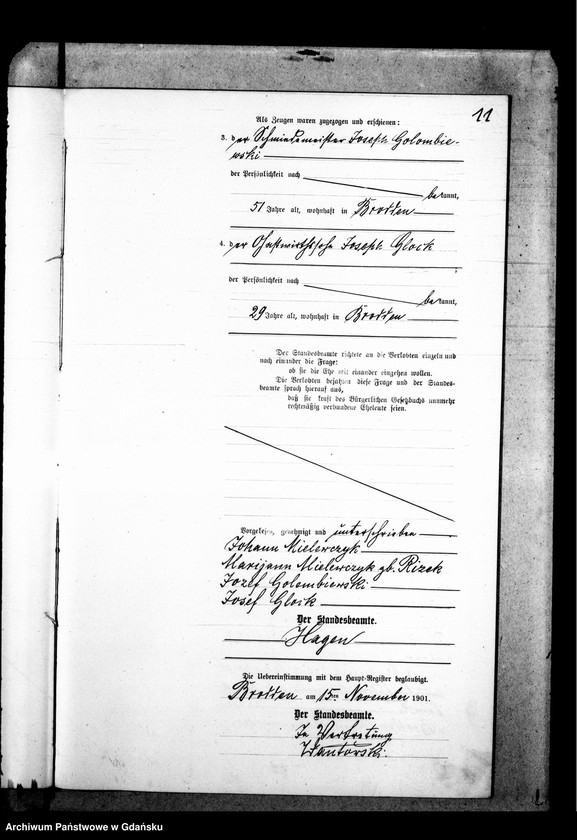 11
Als Zeugen waren zugezogen und erschienen:
3. der Schmiedemeister Joseph Golombie-
wski
der Persönlichkeit nach
bekannt,
51 Jahre alt, wohnhaft in Brodden
4. der Gastwirthssohn Joseph Glock
der Persönlichkeit nach
bekannt,
29 Jahre alt, wohnhaft in Brodden
Der Standesbeamte richtete an die Verlobten einzeln und
nach einander die Frage:
ob sie die Ehe mit einander eingehen wollen.
Die Verlobten bejahten diese Frage und der Standes-
beamte sprach hierauf aus,
daß sie kraft des Bürgerlichen Gesetzbuchs nunmehr
rechtmäßig verbundene Eheleute seien.
Vorgelesen, genehmigt und unterschrieben
Johann Mielewczyk
Marijann Mielewczyk gb. Rizek
Jozef Golombiewski
Josef Glock
Der Standesbeamte.
Hagen
Die Uebereinstimmung mit dem Haupt-Register beglaubigt.
Brodden am 15ten November 1901.
Der Standesbeamte.
In Vertretung
Archiwum Państwowe w Gdańsku